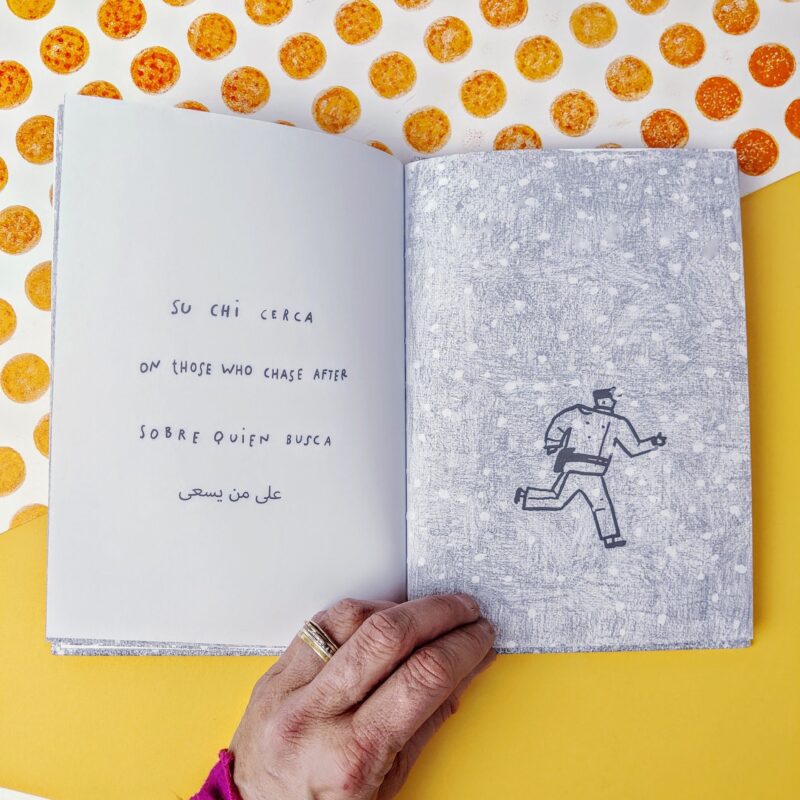 SU CHI CERCA
ON tHOSE WHO CHASE AFTER
SOBRE QUiEN BUSCA
على من يسعى